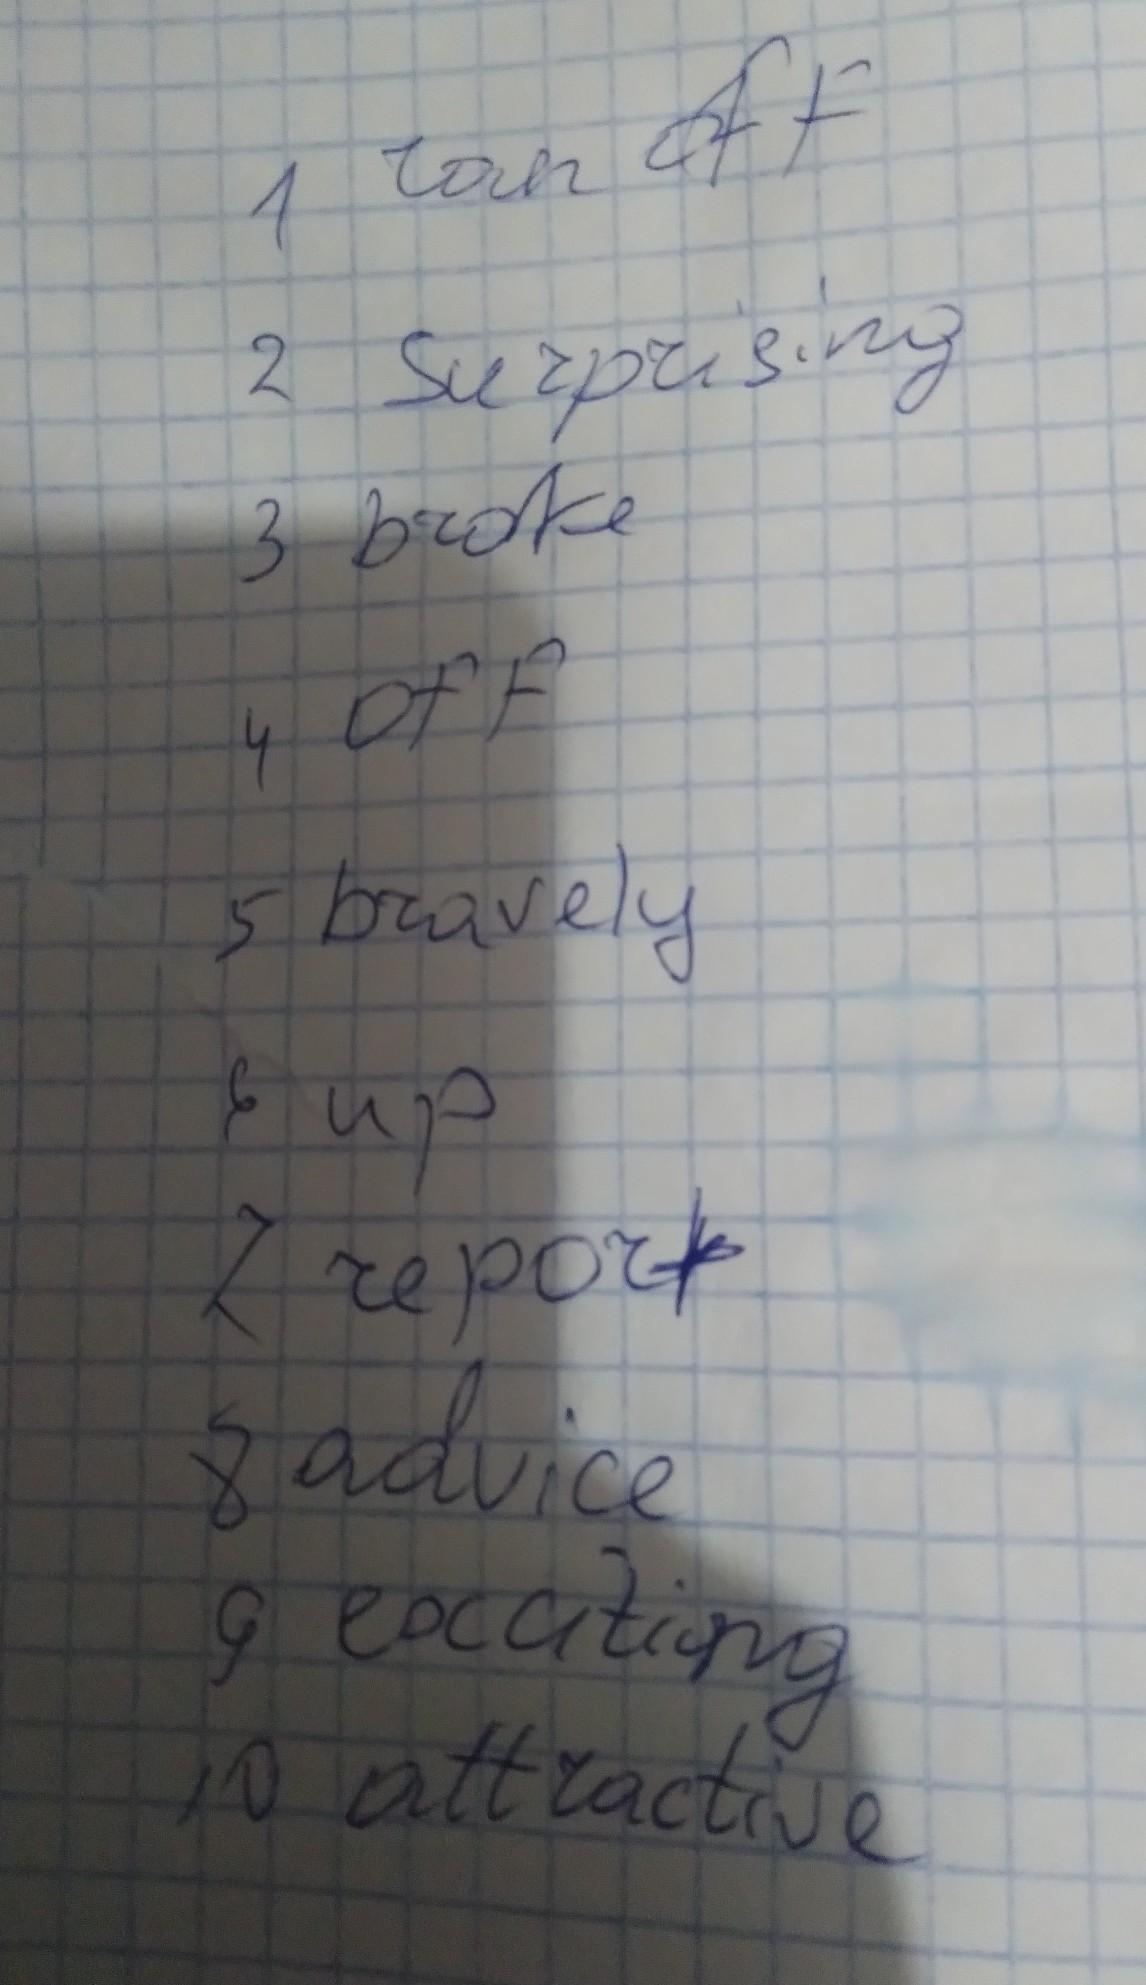 1 ran off
2 Surprising
3 broke
4 off
5 bravely
6 up
7 report
8 advice
9 exciting
10 attractive